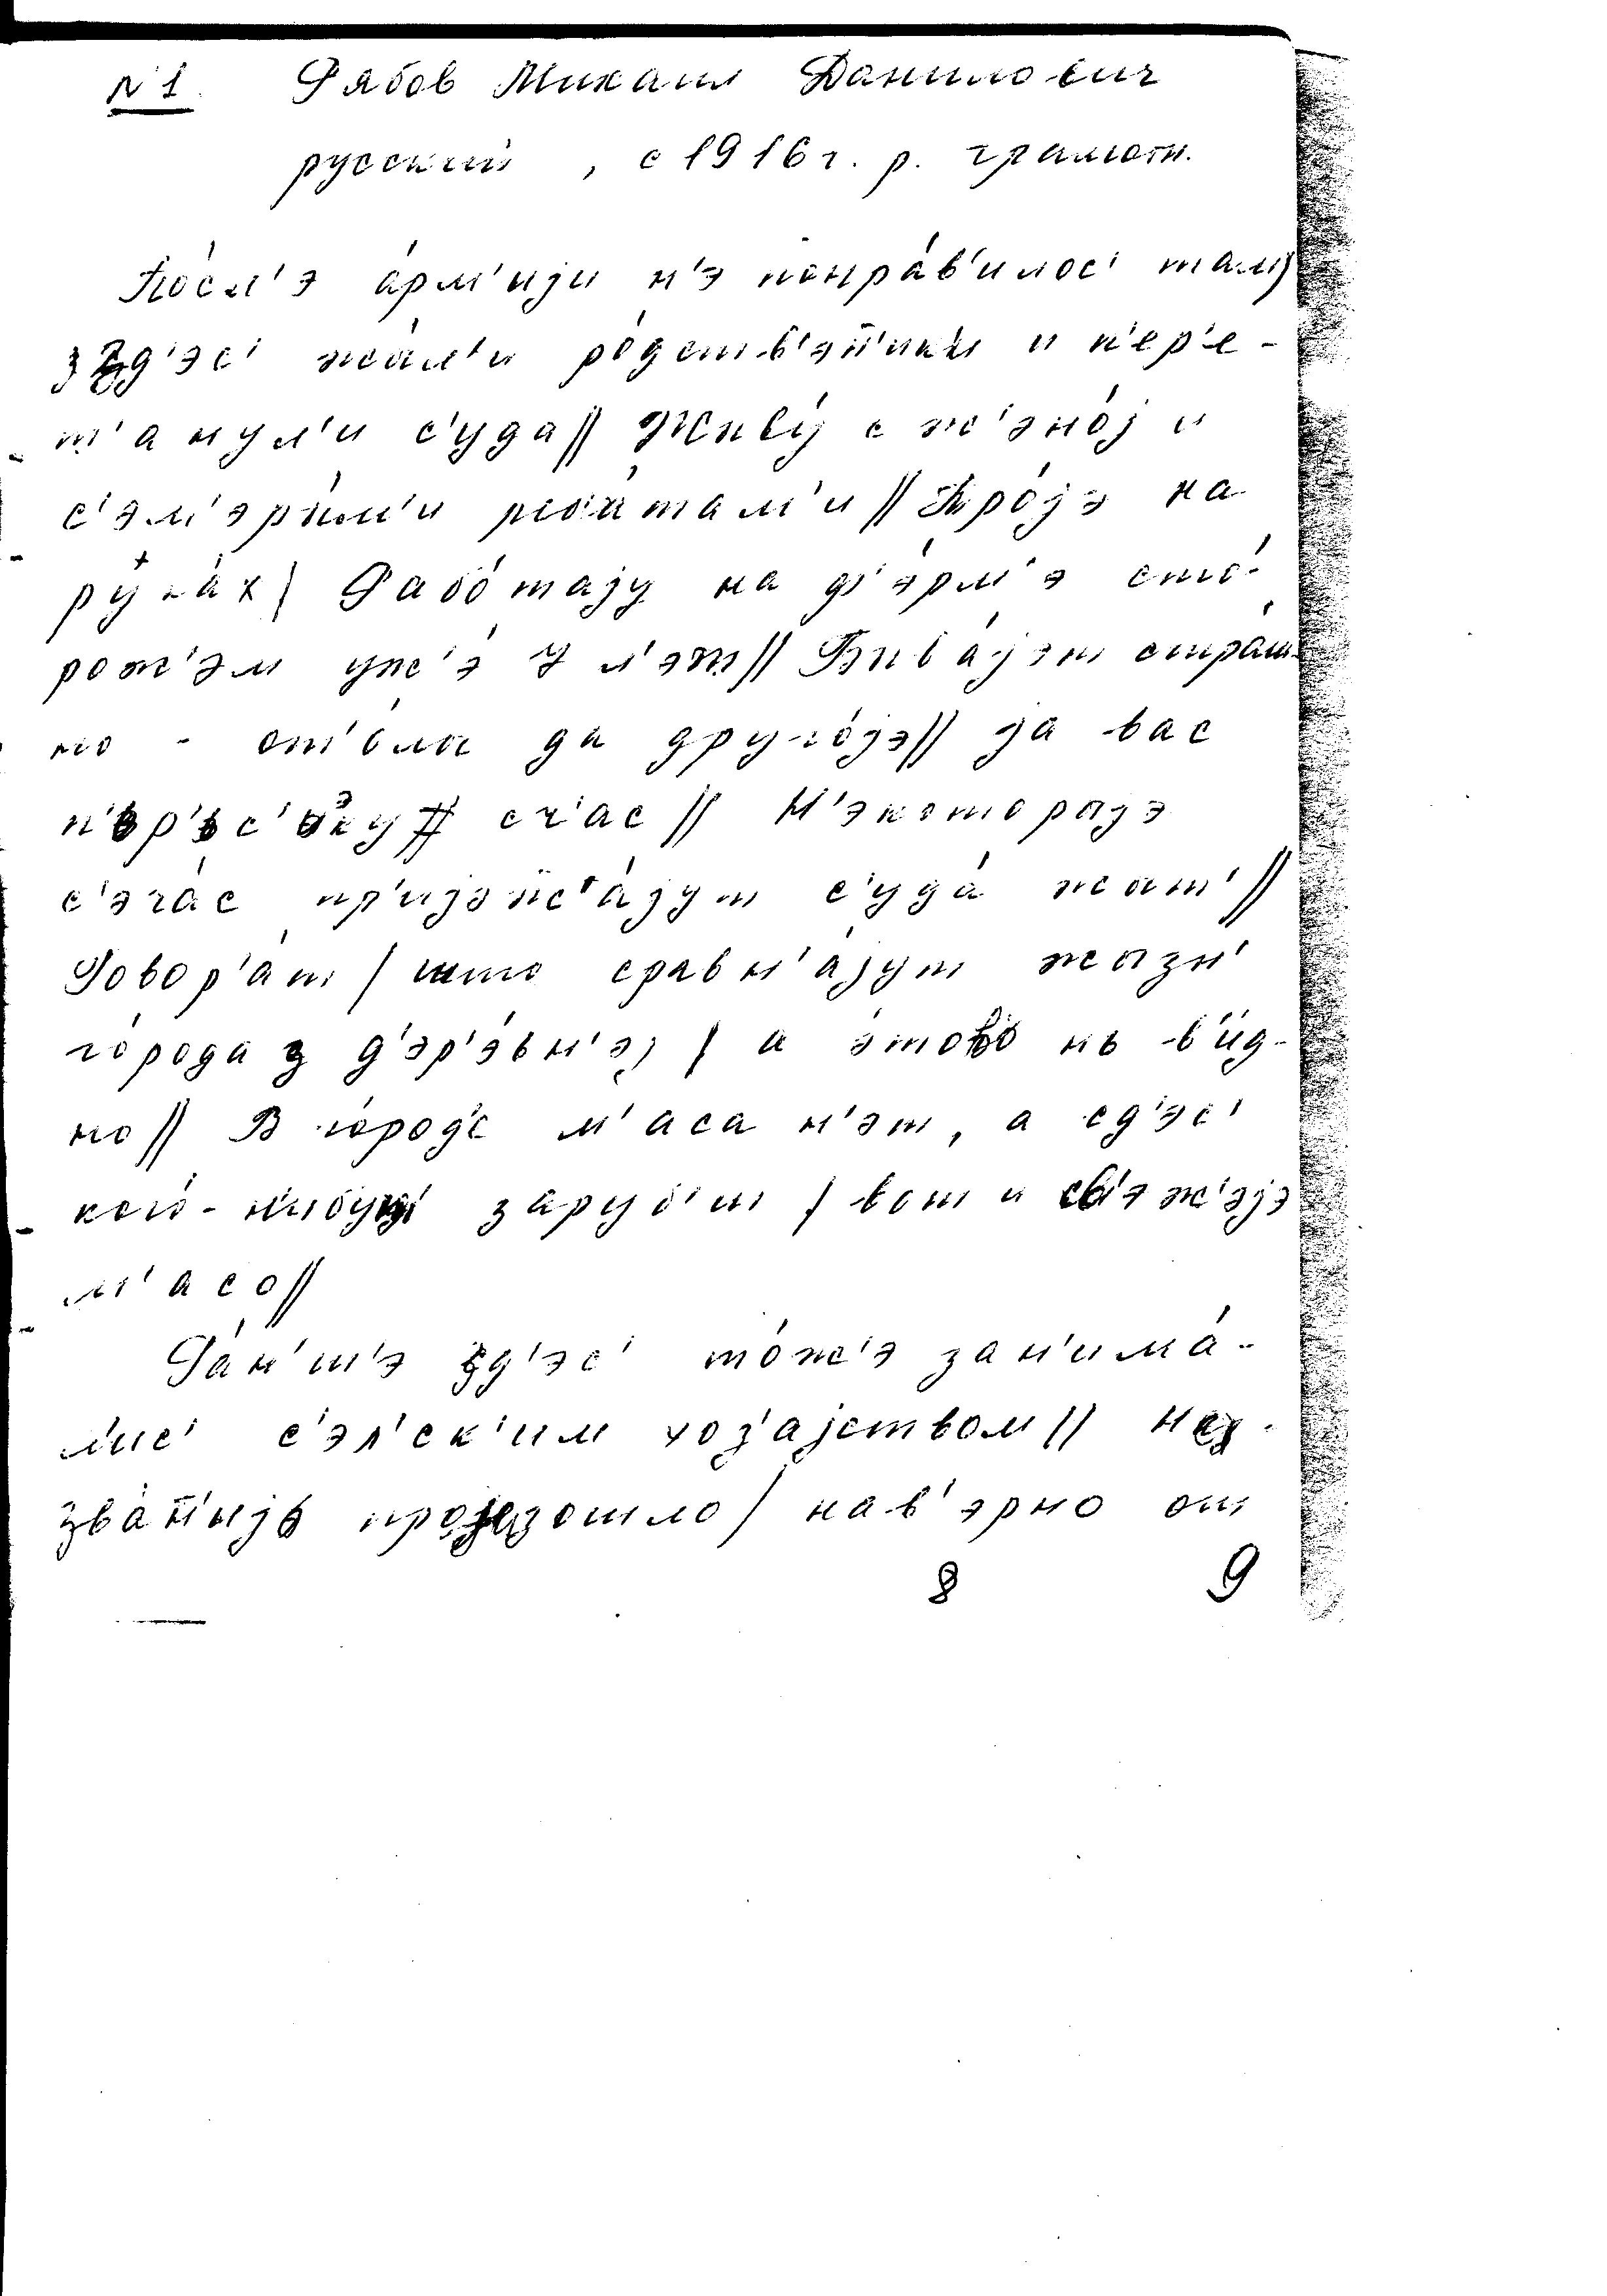 N 1. Рябов Михаил Данилович
русский , с 1916 г. р. грамотн.
По́сл'э а́рм'иjи н'э понра́в'илос' там/
зд'эс' жы́л'и ро́дств'эн̄'ик'и и п'ер'е-
т'анул'и с'уда // Жыву́ с ж'эно́j и
с'эм'эры́м'и рəб'а́там'и // Тро́jэ на
рука́х / Рабо́таjу на ф'э́рм'э сто́-
рож'эм уж'э́ 7 л'эт // Быва́jэт стра́ш-
но - от во́лк да друго́jэ // jа вас
п'ьр'ьс'эку сч'ас // Н'экоторыjэ
с'эча́с пр'иjэж̄'а́jут с'уда́ жыт' //
Говор'а́т / што сравн'а́jут жызн'
го́рода з д'эр'э́вн'эj / а э́тово нь в'и́д-
но // В го́род'е м'аса н'эт, а сд'эс'
кого́-н'ибуд' зару́б'ит / вот и св'эж'эjэ
м'асо //
Ра́н'ш'э зд'эс' то́ж'э зан'има́-
л'ис' с'эл'ск'им хоз'аjством // На-
зва́н'иjь произошло / нав'эрно от
8 9